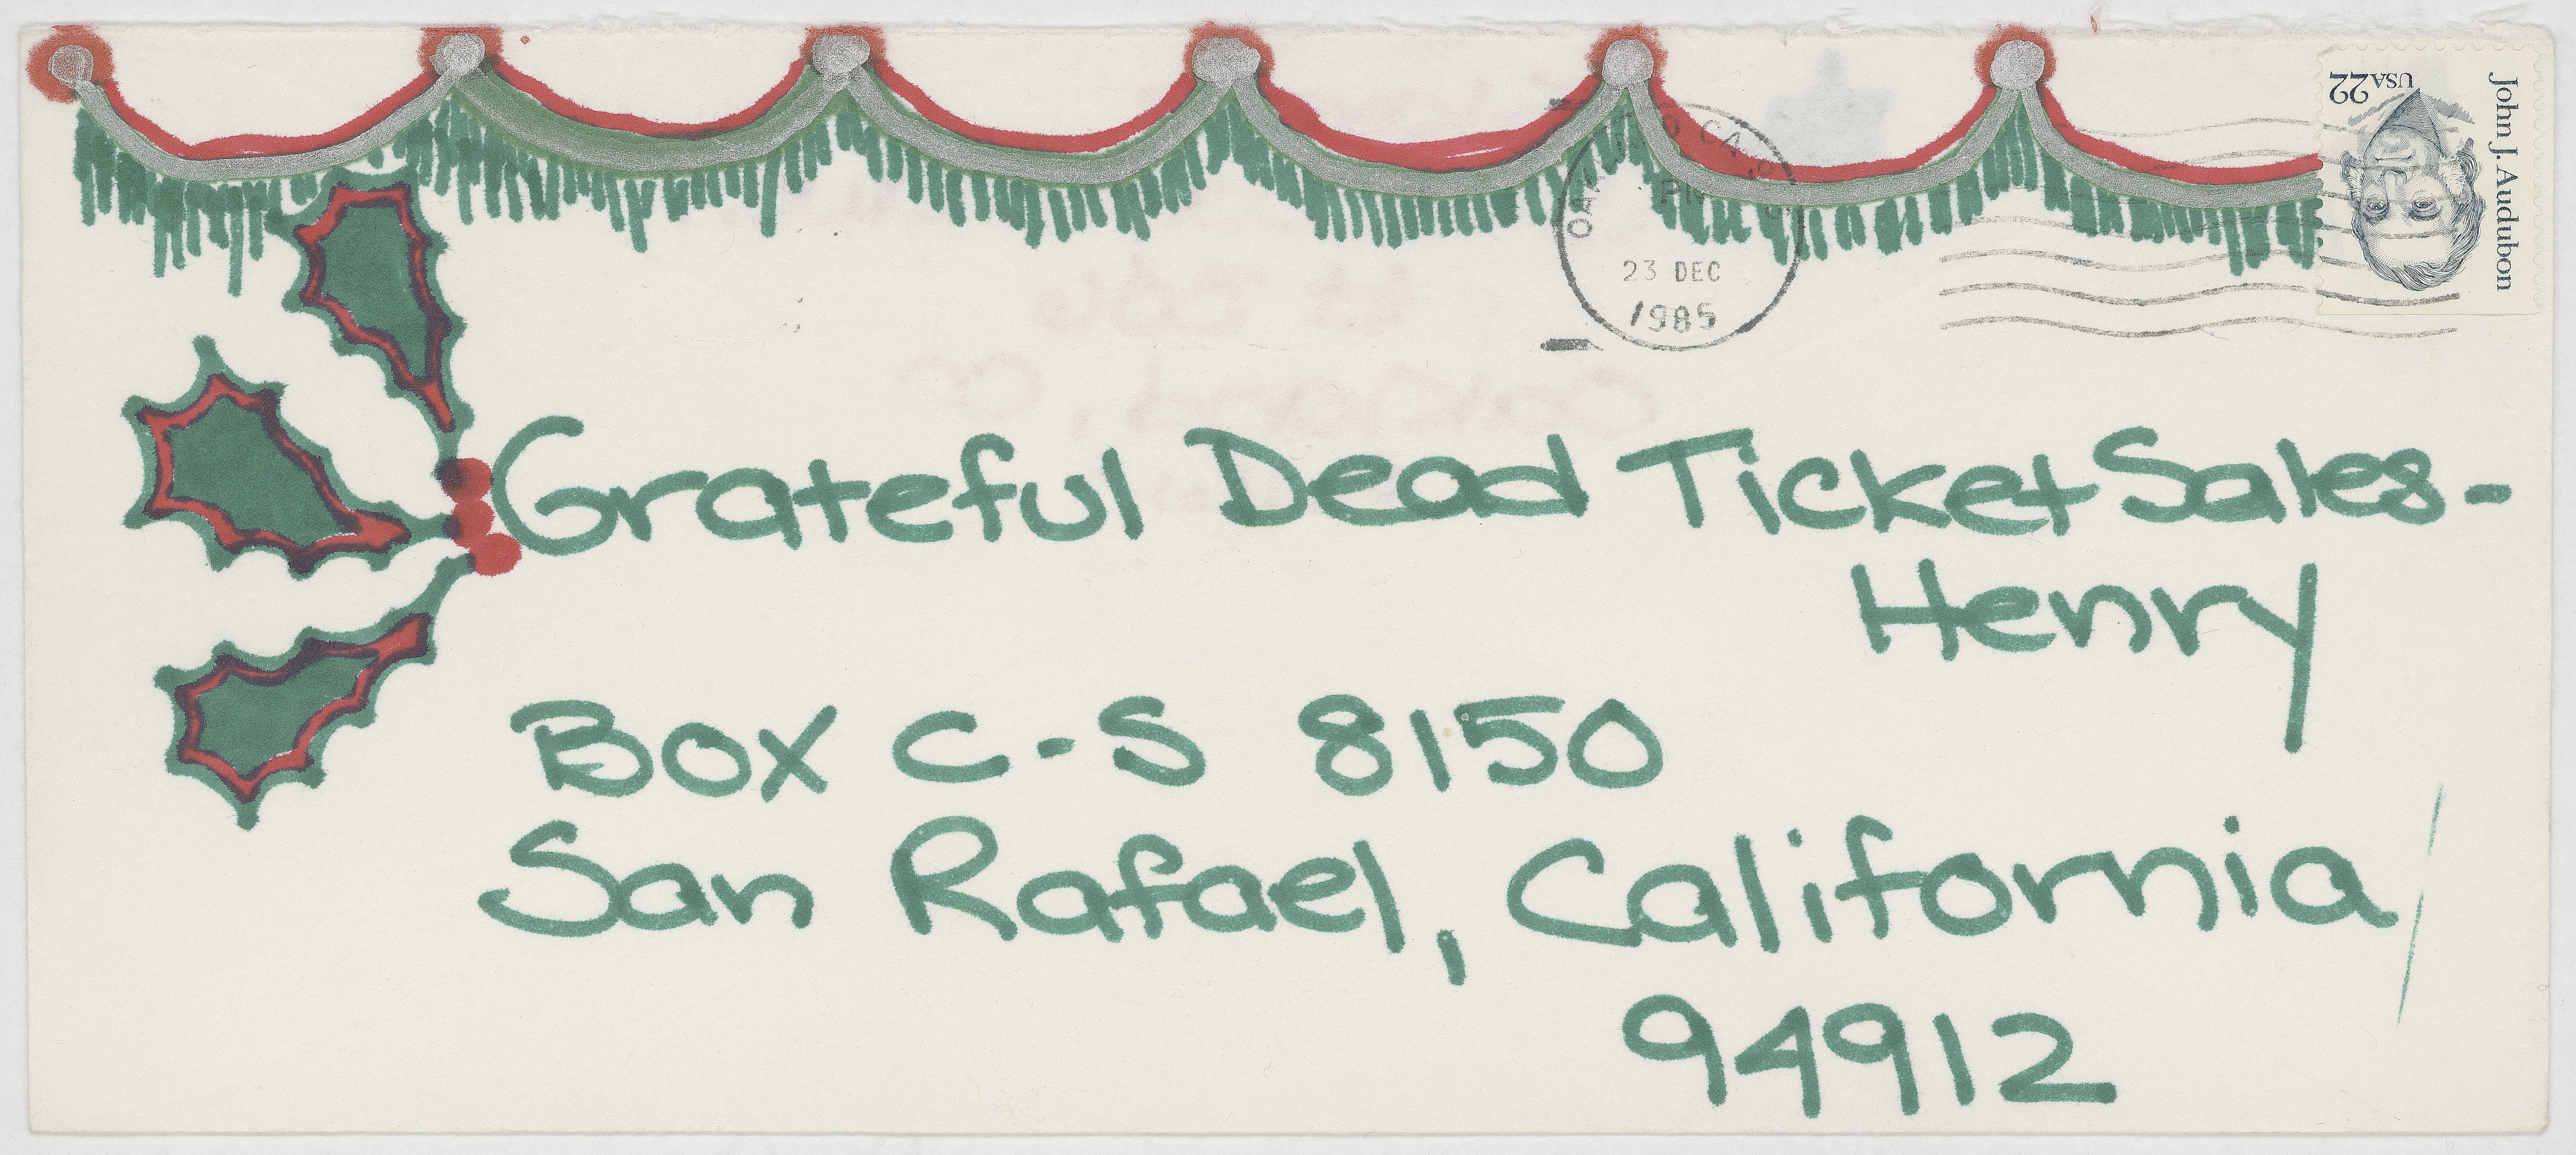 USA22
John J. Audubon
CA
PM
23 DEC
1985
Grateful Dead Ticket Sales-
Henry
Box C-S 8150
San Rafael, California
94912